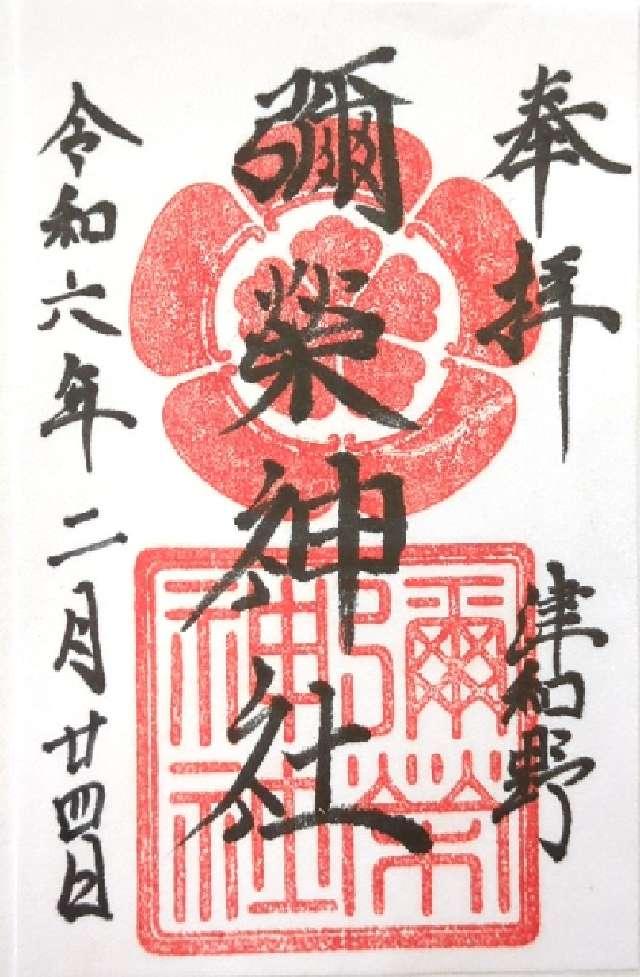 奉拝
津和野
彌榮神社
彌榮
神社
令和六年二月廿四日